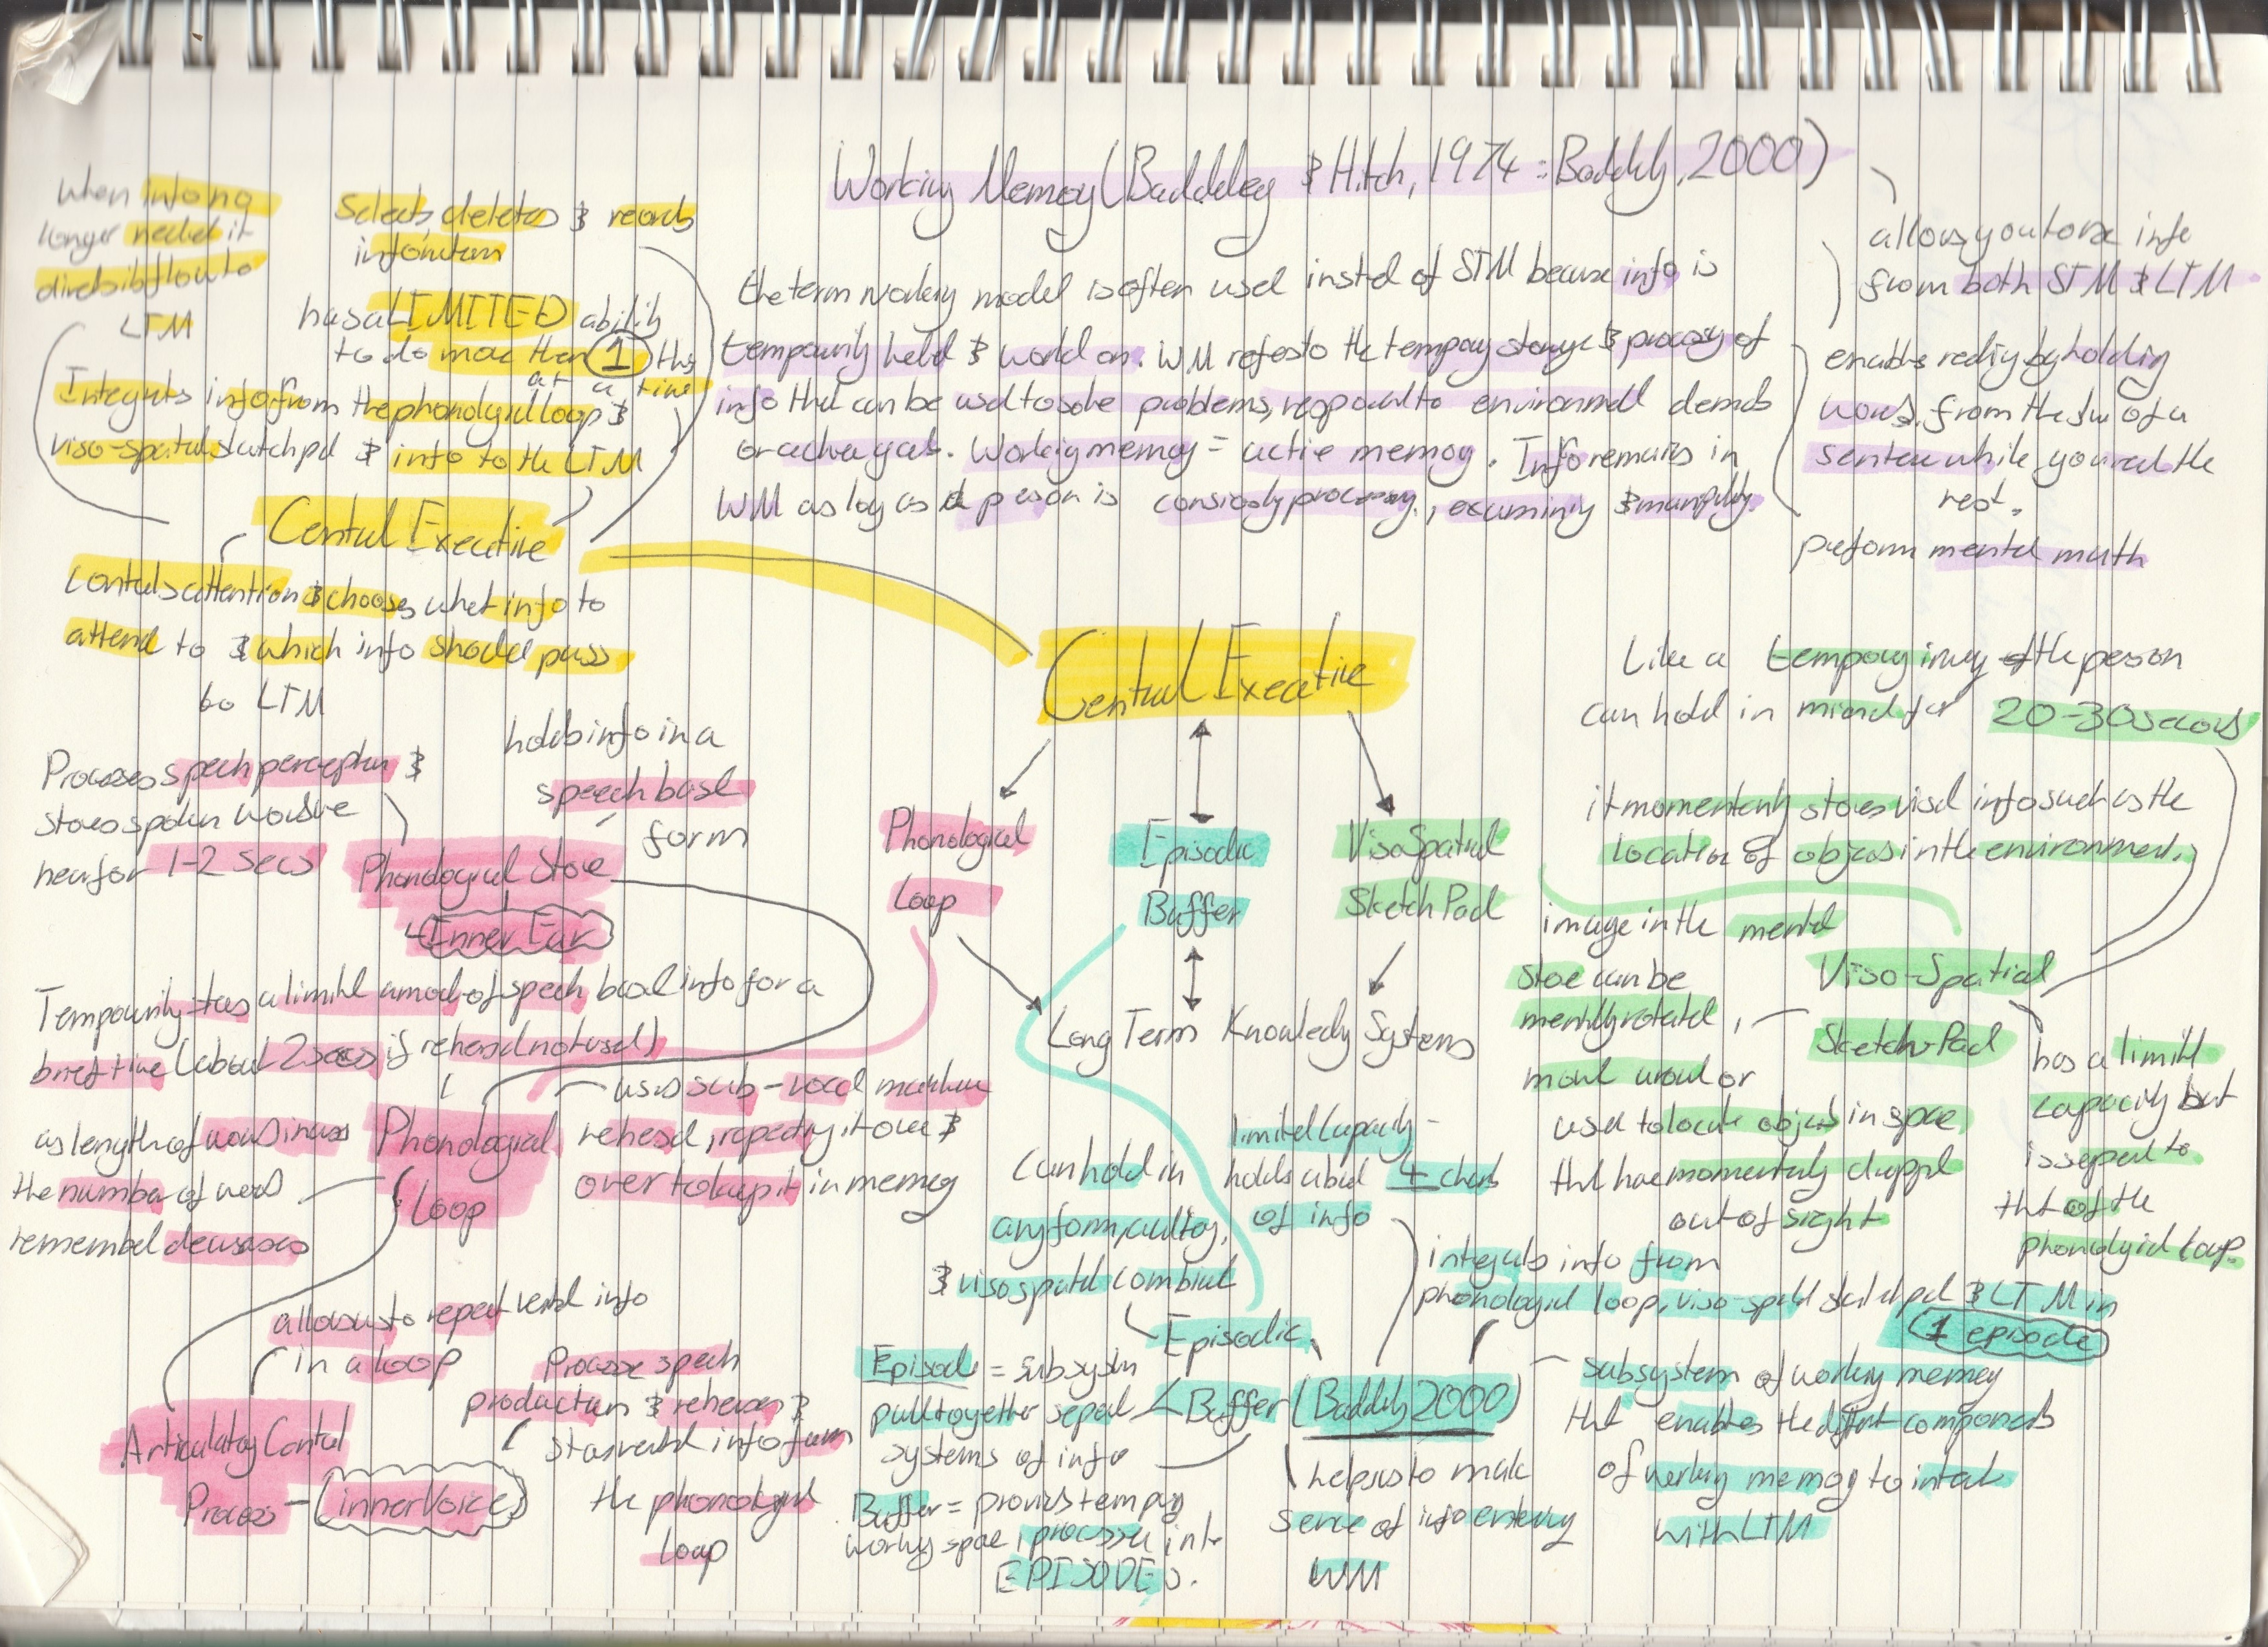 Working Memory (Baddeley & Hitch, 1974 : Baddely, 2000)
the term working model is often used insted of STM because info is
tempourily held & world on. WM refes to the tempory storage & procesy of
info that can be used to solve problems, respond to environmetl demads
or achive goals. Working memory = active memoy. Info remains in
WM as log as a person is
allows you to use info
from both STM & LTM
enables reding by holding
words from the of a
sentence while you read the
rest.
preform mental math
When info no
longer needed it
directs it flow to
LTM
Selects, deletes & records
information
has a LIMITED ability
to do more then 1 thg
at a time
Integrats info from the phonological loop &
viso-spatial sketchpd & info to the LTM
Central Executive
controls attention & chooses what info to
attend to & which info should pass
to LTM
Central Executive
Phonological
Loop
Episodic
Buffer
Viso Spatial
Sketch Pad
Long Term Knowledg Systems
Processes speech perception &
stores spoken words we
hear for 1-2 secs
holds info in a
speech based
form
Phonological Store
Inner Ear
a limited amout of speech based info for a
brief time (about 2 secs if rehersed not used)
as length of words incrases
the number of words
remembed decreases
Phonological
Loop
uses sub-vocal
rehersd, repeating it over &
over to keep it in memory
allows us to repeat verbal info
in a loop
Articulatory Control
Process - inner Voice
Processe speech
production & reherses &
stores verbal info from
the phonological
loop
Can hold in
any form, auditory,
& viso spatial combined
limited capacity -
holds about 4 chuks
of info
integrats info from
phonological loop, viso-spatial sketchpad & LTM in
1 episode
Episodic
Buffer (Baddely 2000)
Episode = subsystm
pull together seperat
systems of info
Buffer = provids tempory
workig space, processe into
EPISODES.
helps us to make
sence of info entering
WM
subsystem of working memey
tht enables the diffrnt componets
of working memory to
with LTM
Like a tempory imag the person
can hold in mind for 20-30 seconds
it momentarily stores visul info such as the
location of objects in the environment.
Viso-Spatial
Sketch-Pad
image in the mental
store can be
mentally rotated,
moved around or
used to locate objects in space
tht have momentarily dropped
out of sight
has a limited
capacity but
is seperat to
tht of the
phonological loop.